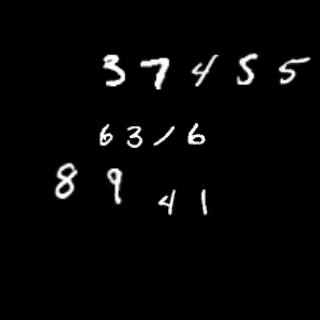 37455
6316
89
41